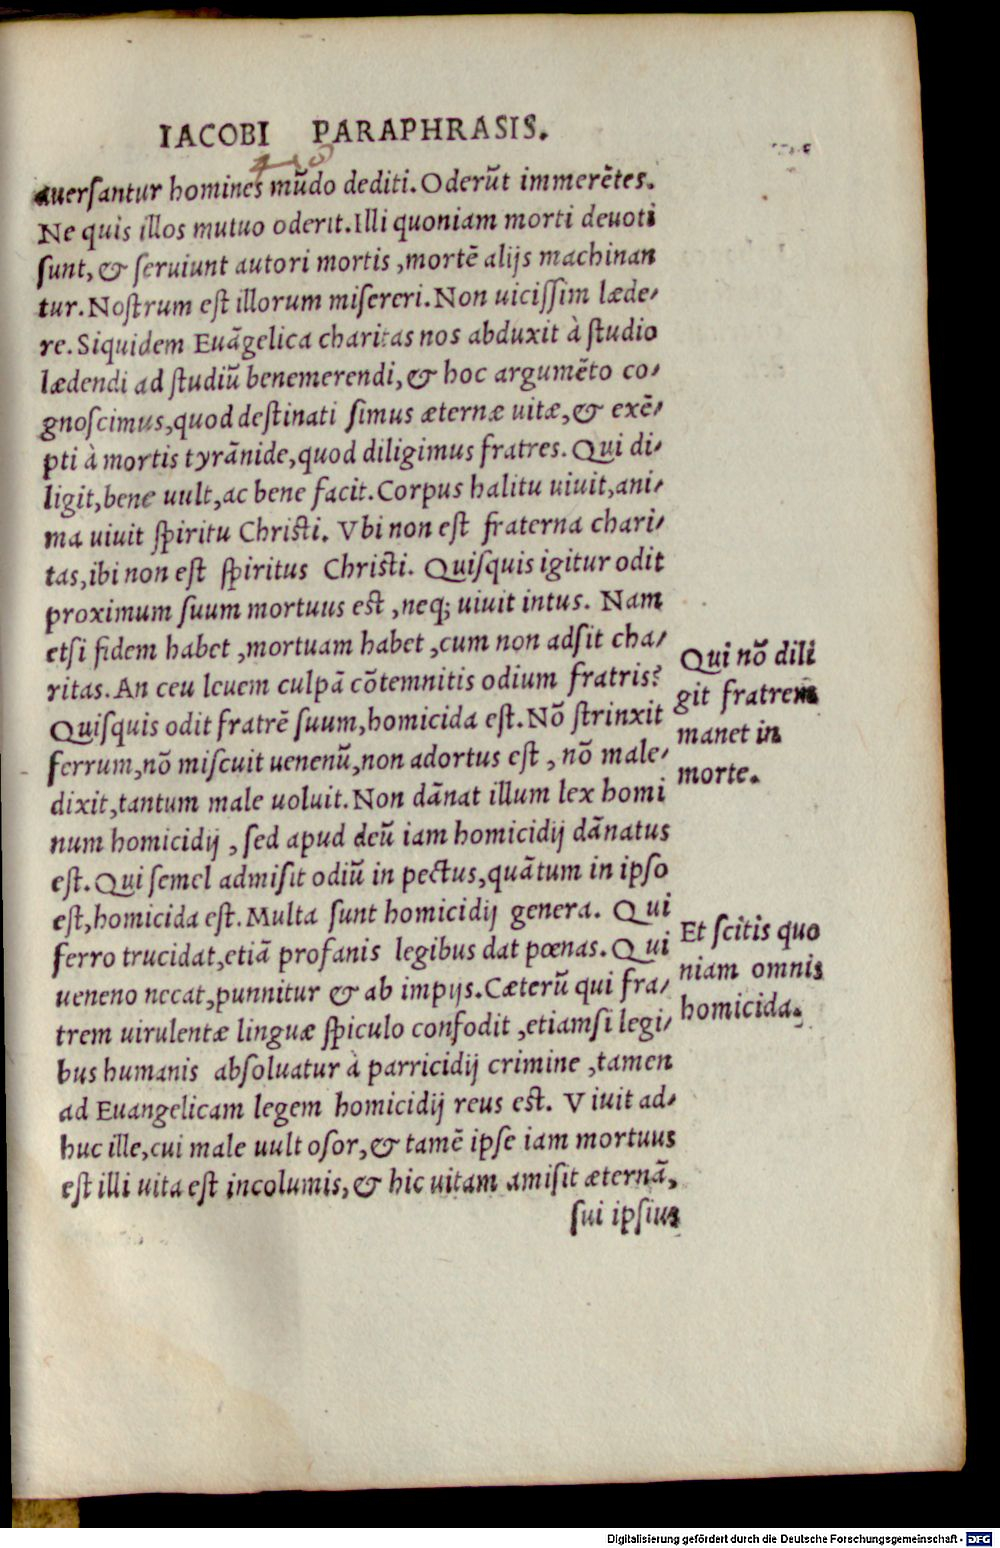 IACOBI PARAPHRASIS.
auersantur homines mũdo dediti. Oderũt immerẽtes.
Ne quis illos mutuo oderit. Illi quoniam morti deuoti
sunt, & seruiunt autori mortis, mortẽ alijs machinan
tur. Nostrum est illorum misereri. Non uicissim læde⸗
re. Siquidem Euãgelica charitas nos abduxit à studio
lædendi ad studiũ benemerendi, & hoc argumẽto co⸗
gnoscimus, quod destinati simus æternæ uitæ, & exẽ⸗
pti à mortis tyrãnide, quod diligimus fratres. Qui di⸗
ligit, bene uult, ac bene facit. Corpus halitu uiuit, ani⸗
ma uiuit spiritu Christi. Vbi non est fraterna chari⸗
tas, ibi non est spiritus Christi. Quisquis igitur odit
proximum suum mortuus est, neq; uiuit intus. Nam
etsi fidem habet, mortuam habet, cum non adsit cha⸗
ritas. An ceu leuem culpã cõtemnitis odium fratris?
Quisquis odit fratrẽ suum, homicida est. Nõ strinxit
ferrum, nõ miscuit uenenũ, non adortus est, nõ male⸗
dixit, tantum male uoluit. Non dãnat illum lex homi
num homicidij, sed apud deũ iam homicidij dãnatus
est. Qui semel admisit odiũ in pectus, quãtum in ipso
est, homicida est. Multa sunt homicidij genera. Qui
ferro trucidat, etiã profanis legibus dat pœnas. Qui
ueneno necat, punnitur & ab impijs. Cæterũ qui fra⸗
trem uirulentæ linguæ spiculo confodit, etiamsi legi⸗
bus humanis absoluatur à parricidij crimine, tamen
ad Euangelicam legem homicidij reus est. Viuit ad⸗
huc ille, cui male uult osor, & tamẽ ipse iam mortuus
est illi uita est incolumis, & hic uitam amisit æternã,
sui ipsius
Qui nõ dili
git fratrem
manet in
morte.
Et scitis quo
niam omnis
homicida.
Digitalisierung gefördert durch die Deutsche Forschungsgemeinschaft - DFG